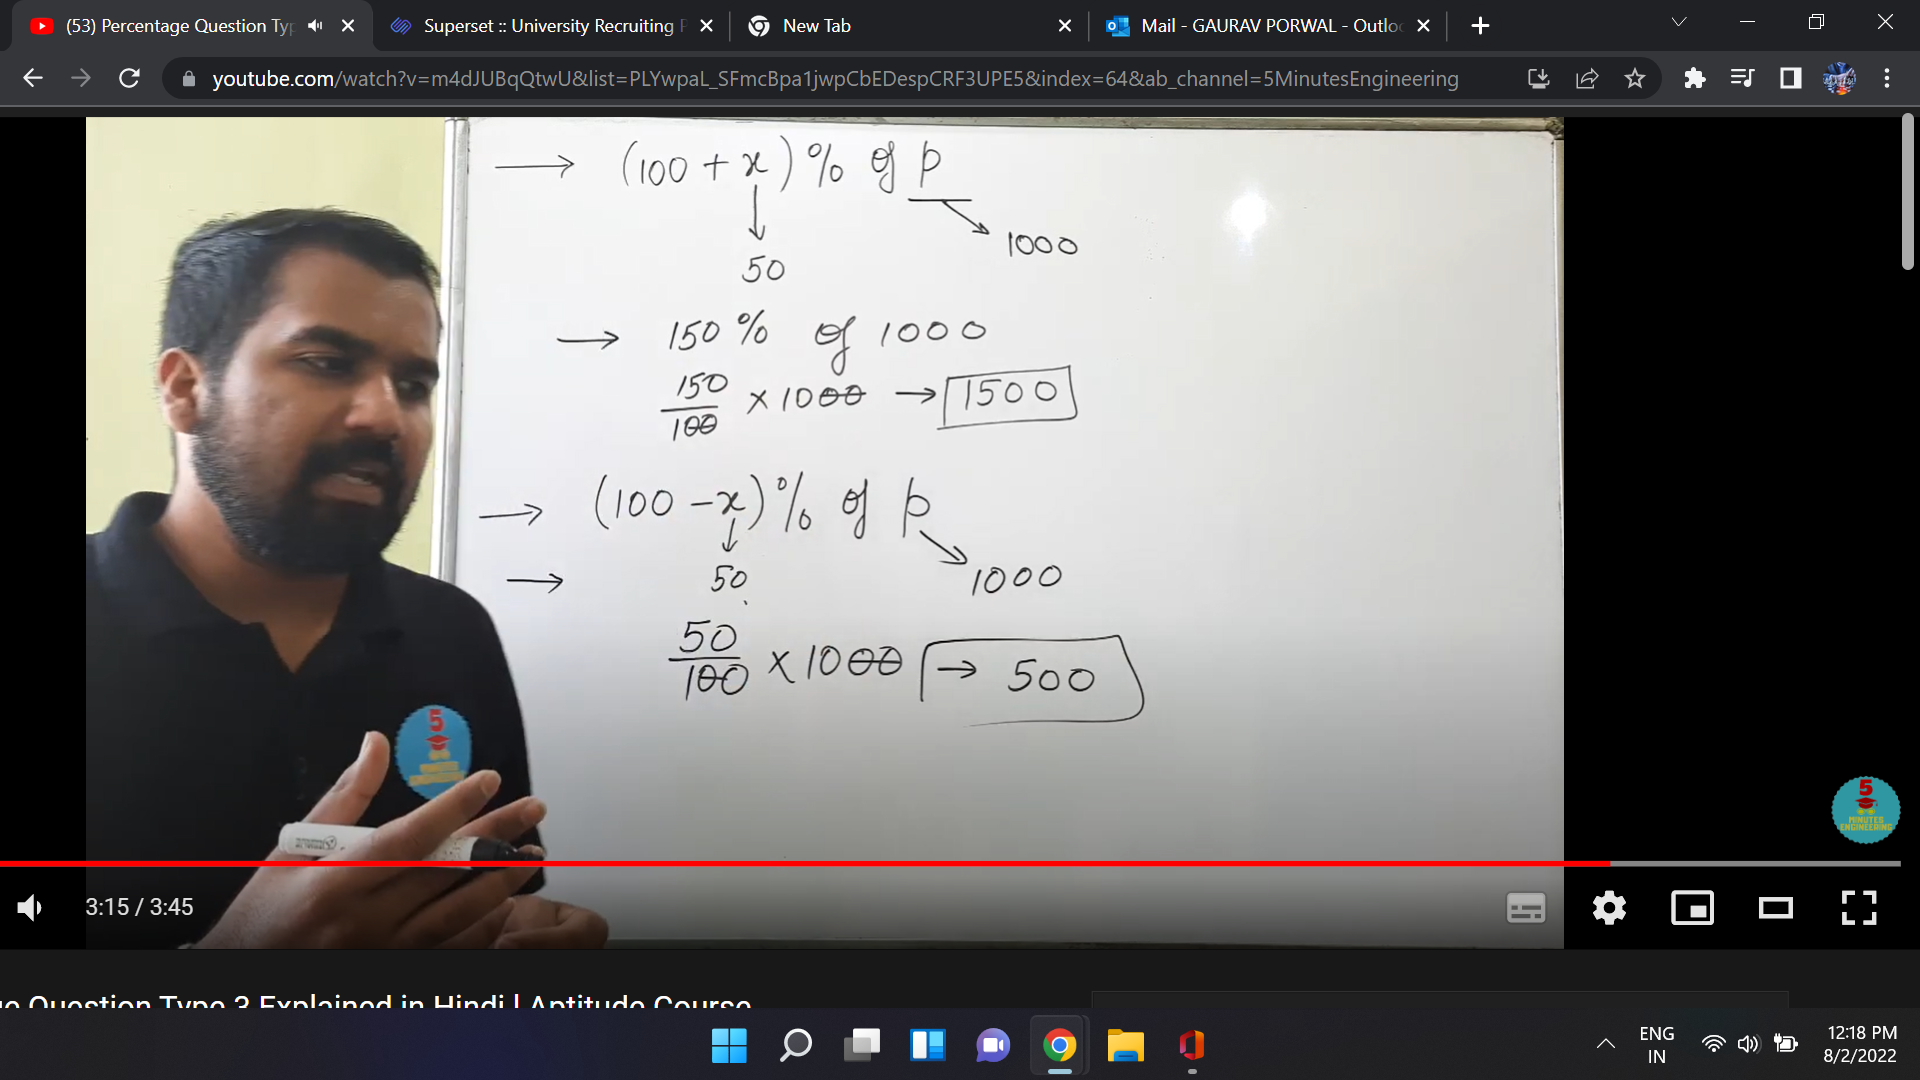 (53) Percentage Question Typ
Superset :: University Recruiting P
New Tab
Mail - GAURAV PORWAL - Outlo
youtube.com/watch?v=m4dJUBqQtwU&list=PLYwpaL_SFmcBpa1jwpCbEDespCRF3UPE5&index=64&ab_channel=5MinutesEngineering
→ (100 + x) % of p
50
1000
→ 150 % of 1000
150
100
× 1000 → 1500
→ (100 - x) % of p
→ 50
1000
50
100
× 1000 → 500
5
MINUTES
ENGINEERING
5
MINUTES
ENGINEERING
3:15 / 3:45
ge Question Type 3 Explained in Hindi | Aptitude Course
ENG
IN
12:18 PM
8/2/2022